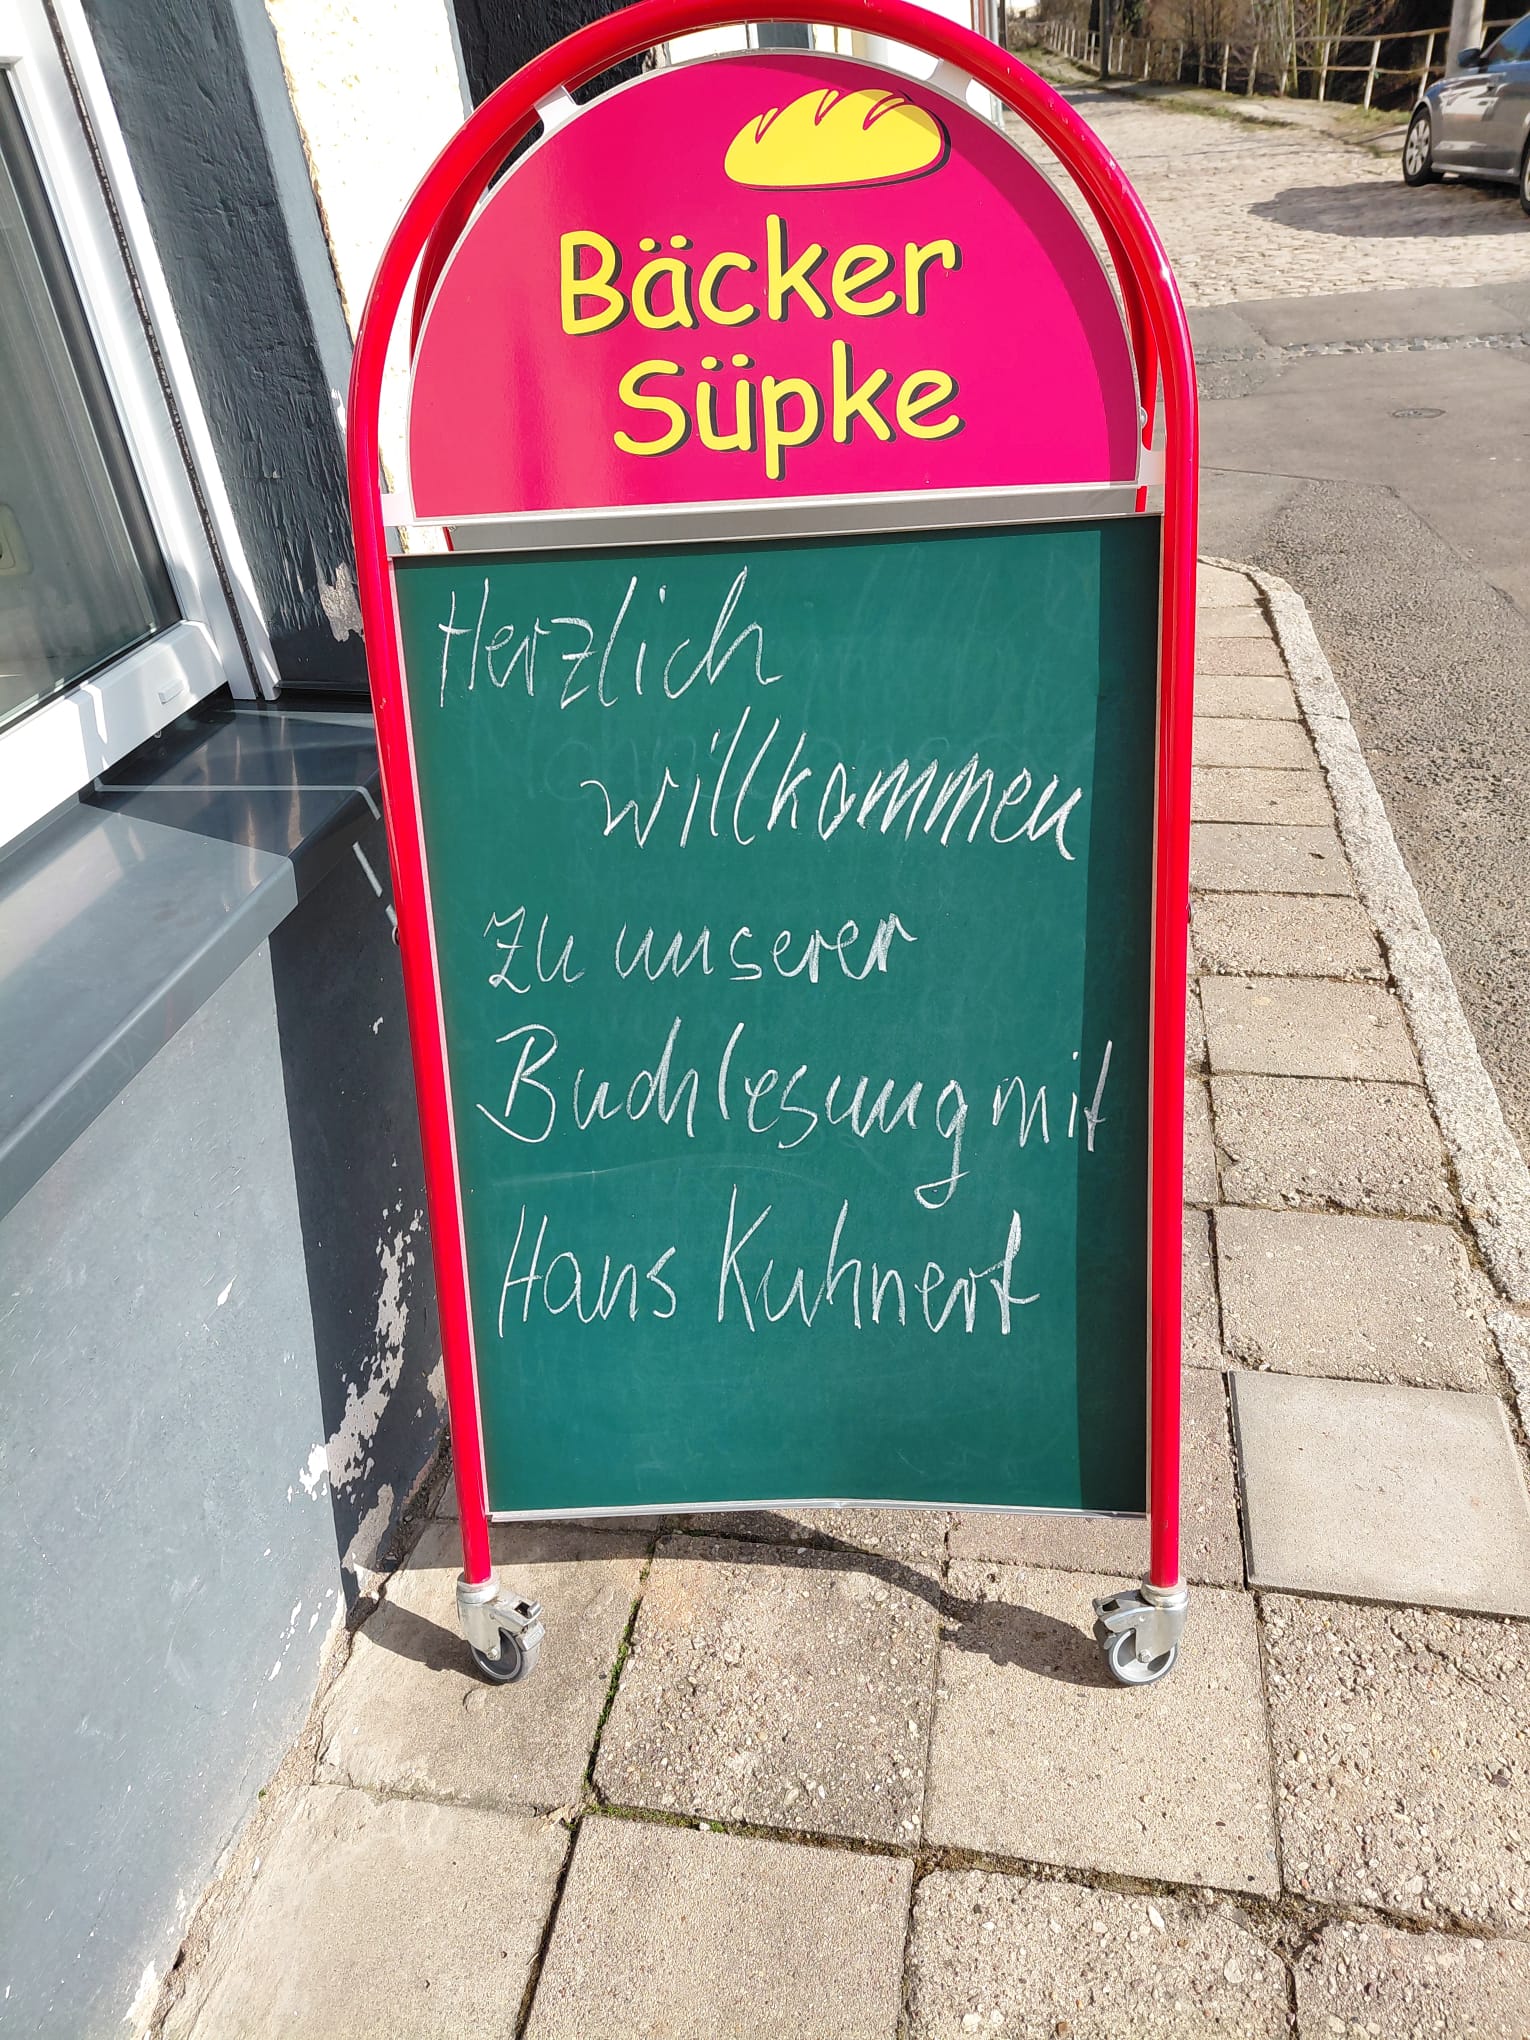 Bäcker
Süpke
Herzlich
willkommen
zu unserer
Buchlesung mit
Hans Kuhnert